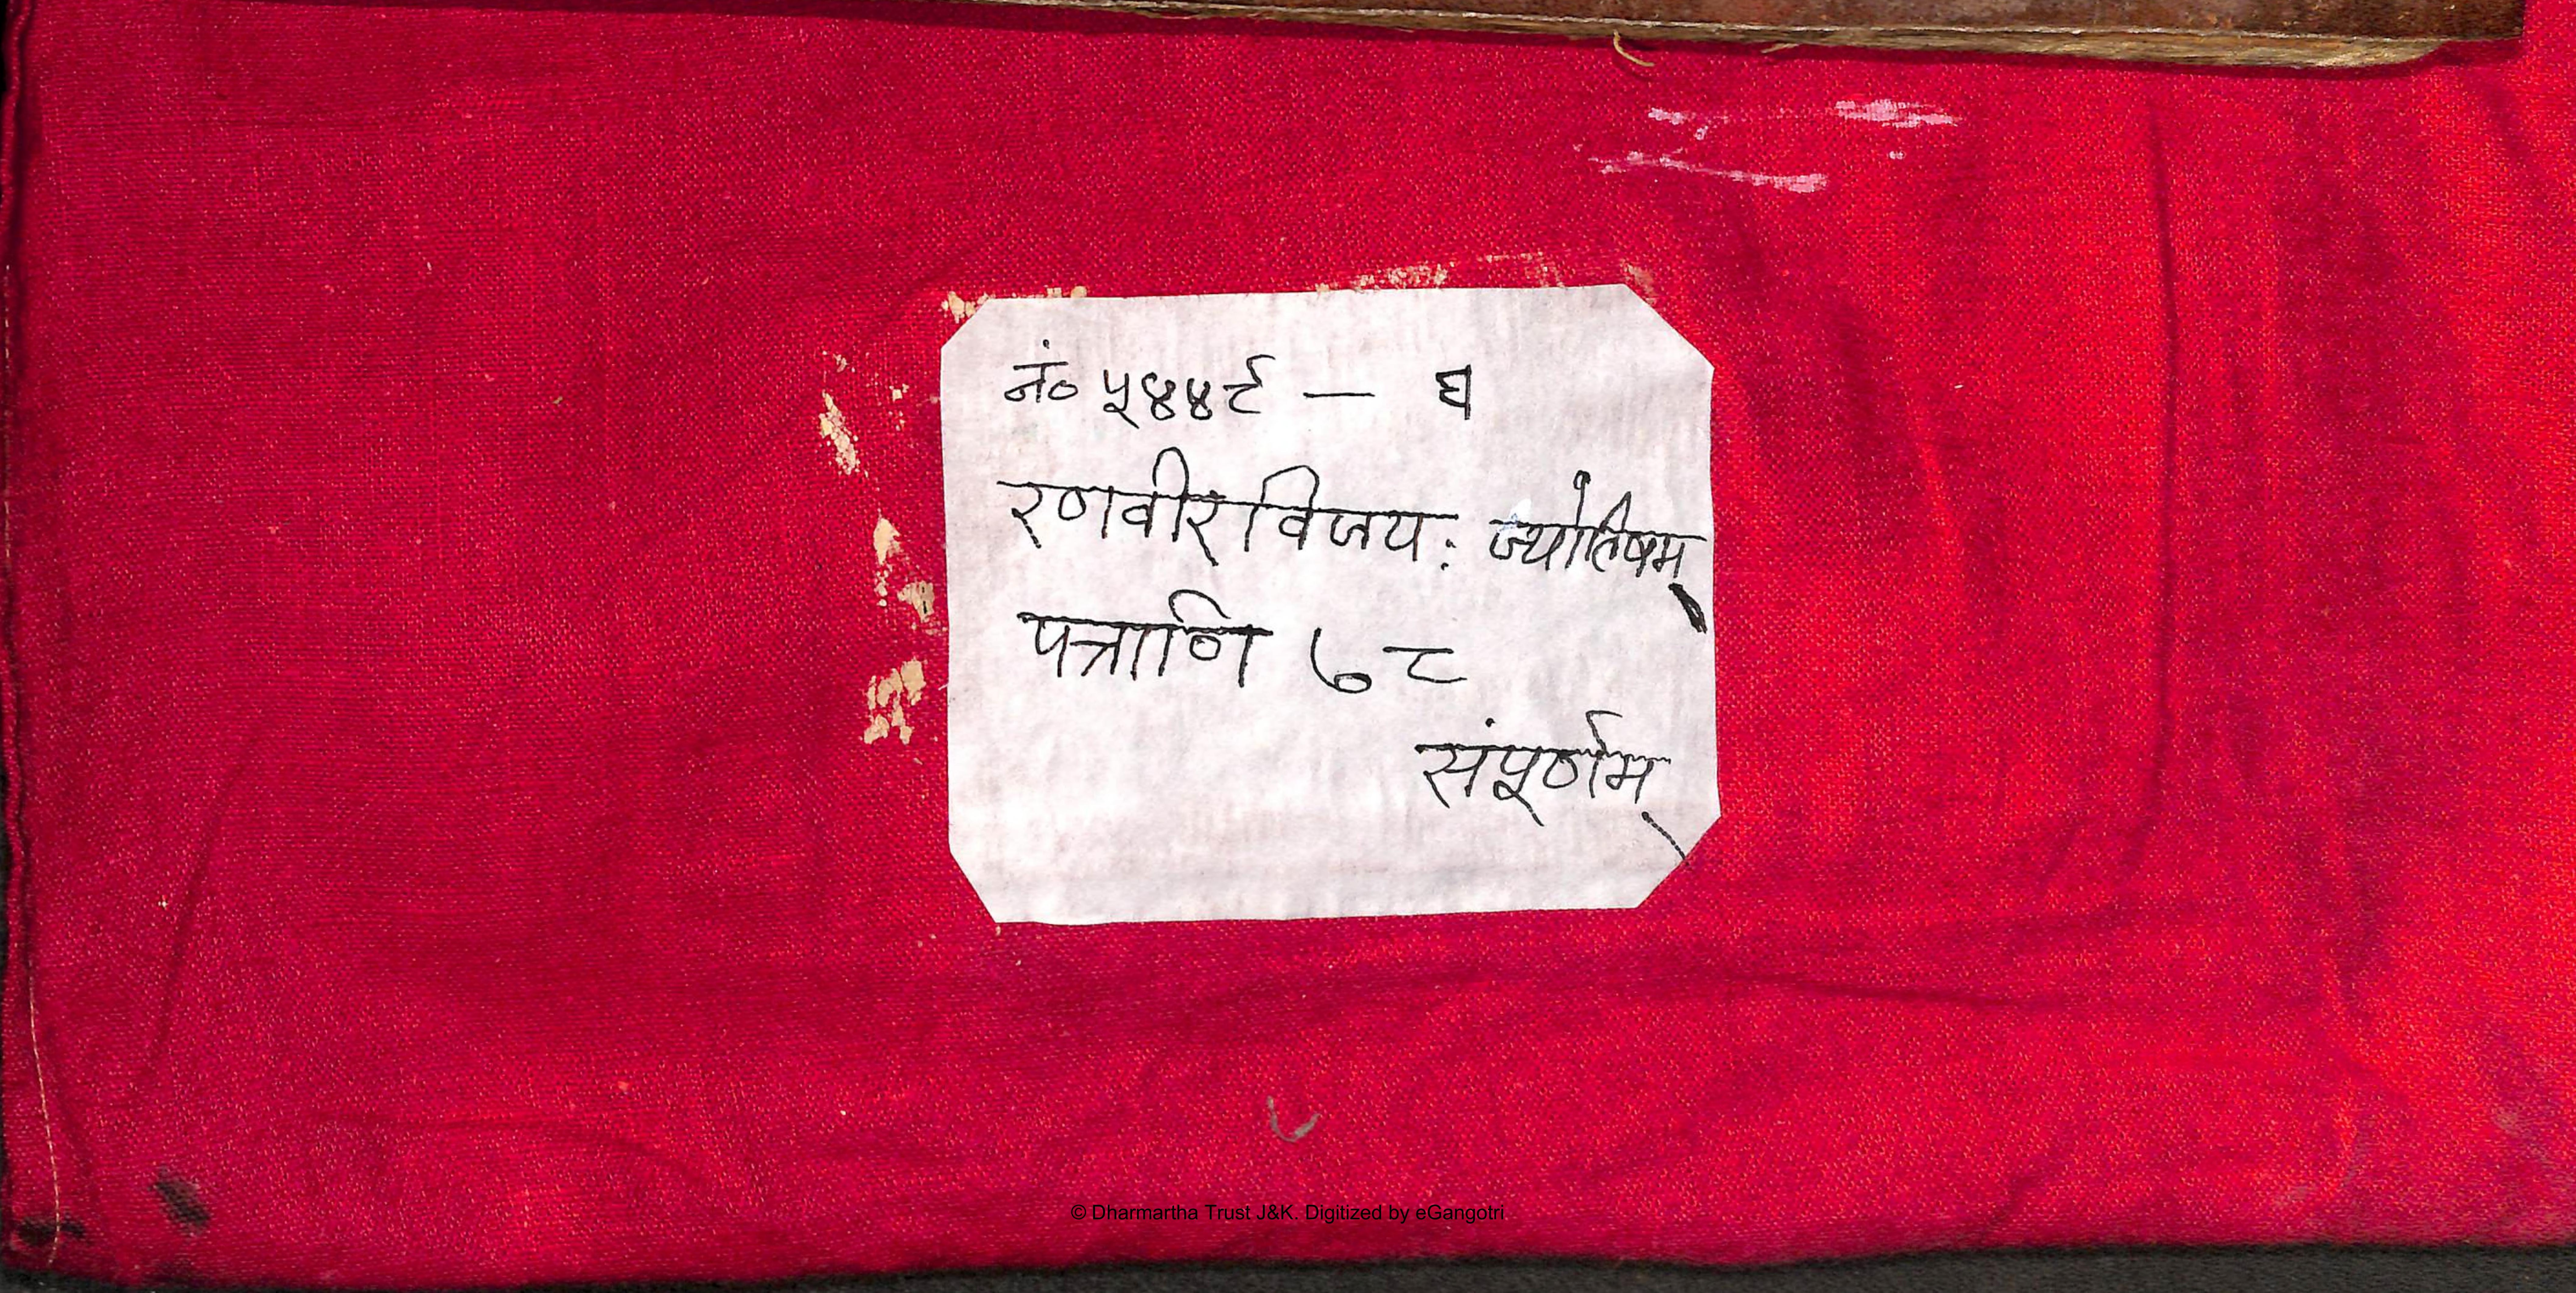 नं० ५४४९ — घ
रणवीरविजयः ज्योतिषम्
पत्राणि ७८
संपूर्णम्
© Dharmartha Trust J&K. Digitized by eGangotri